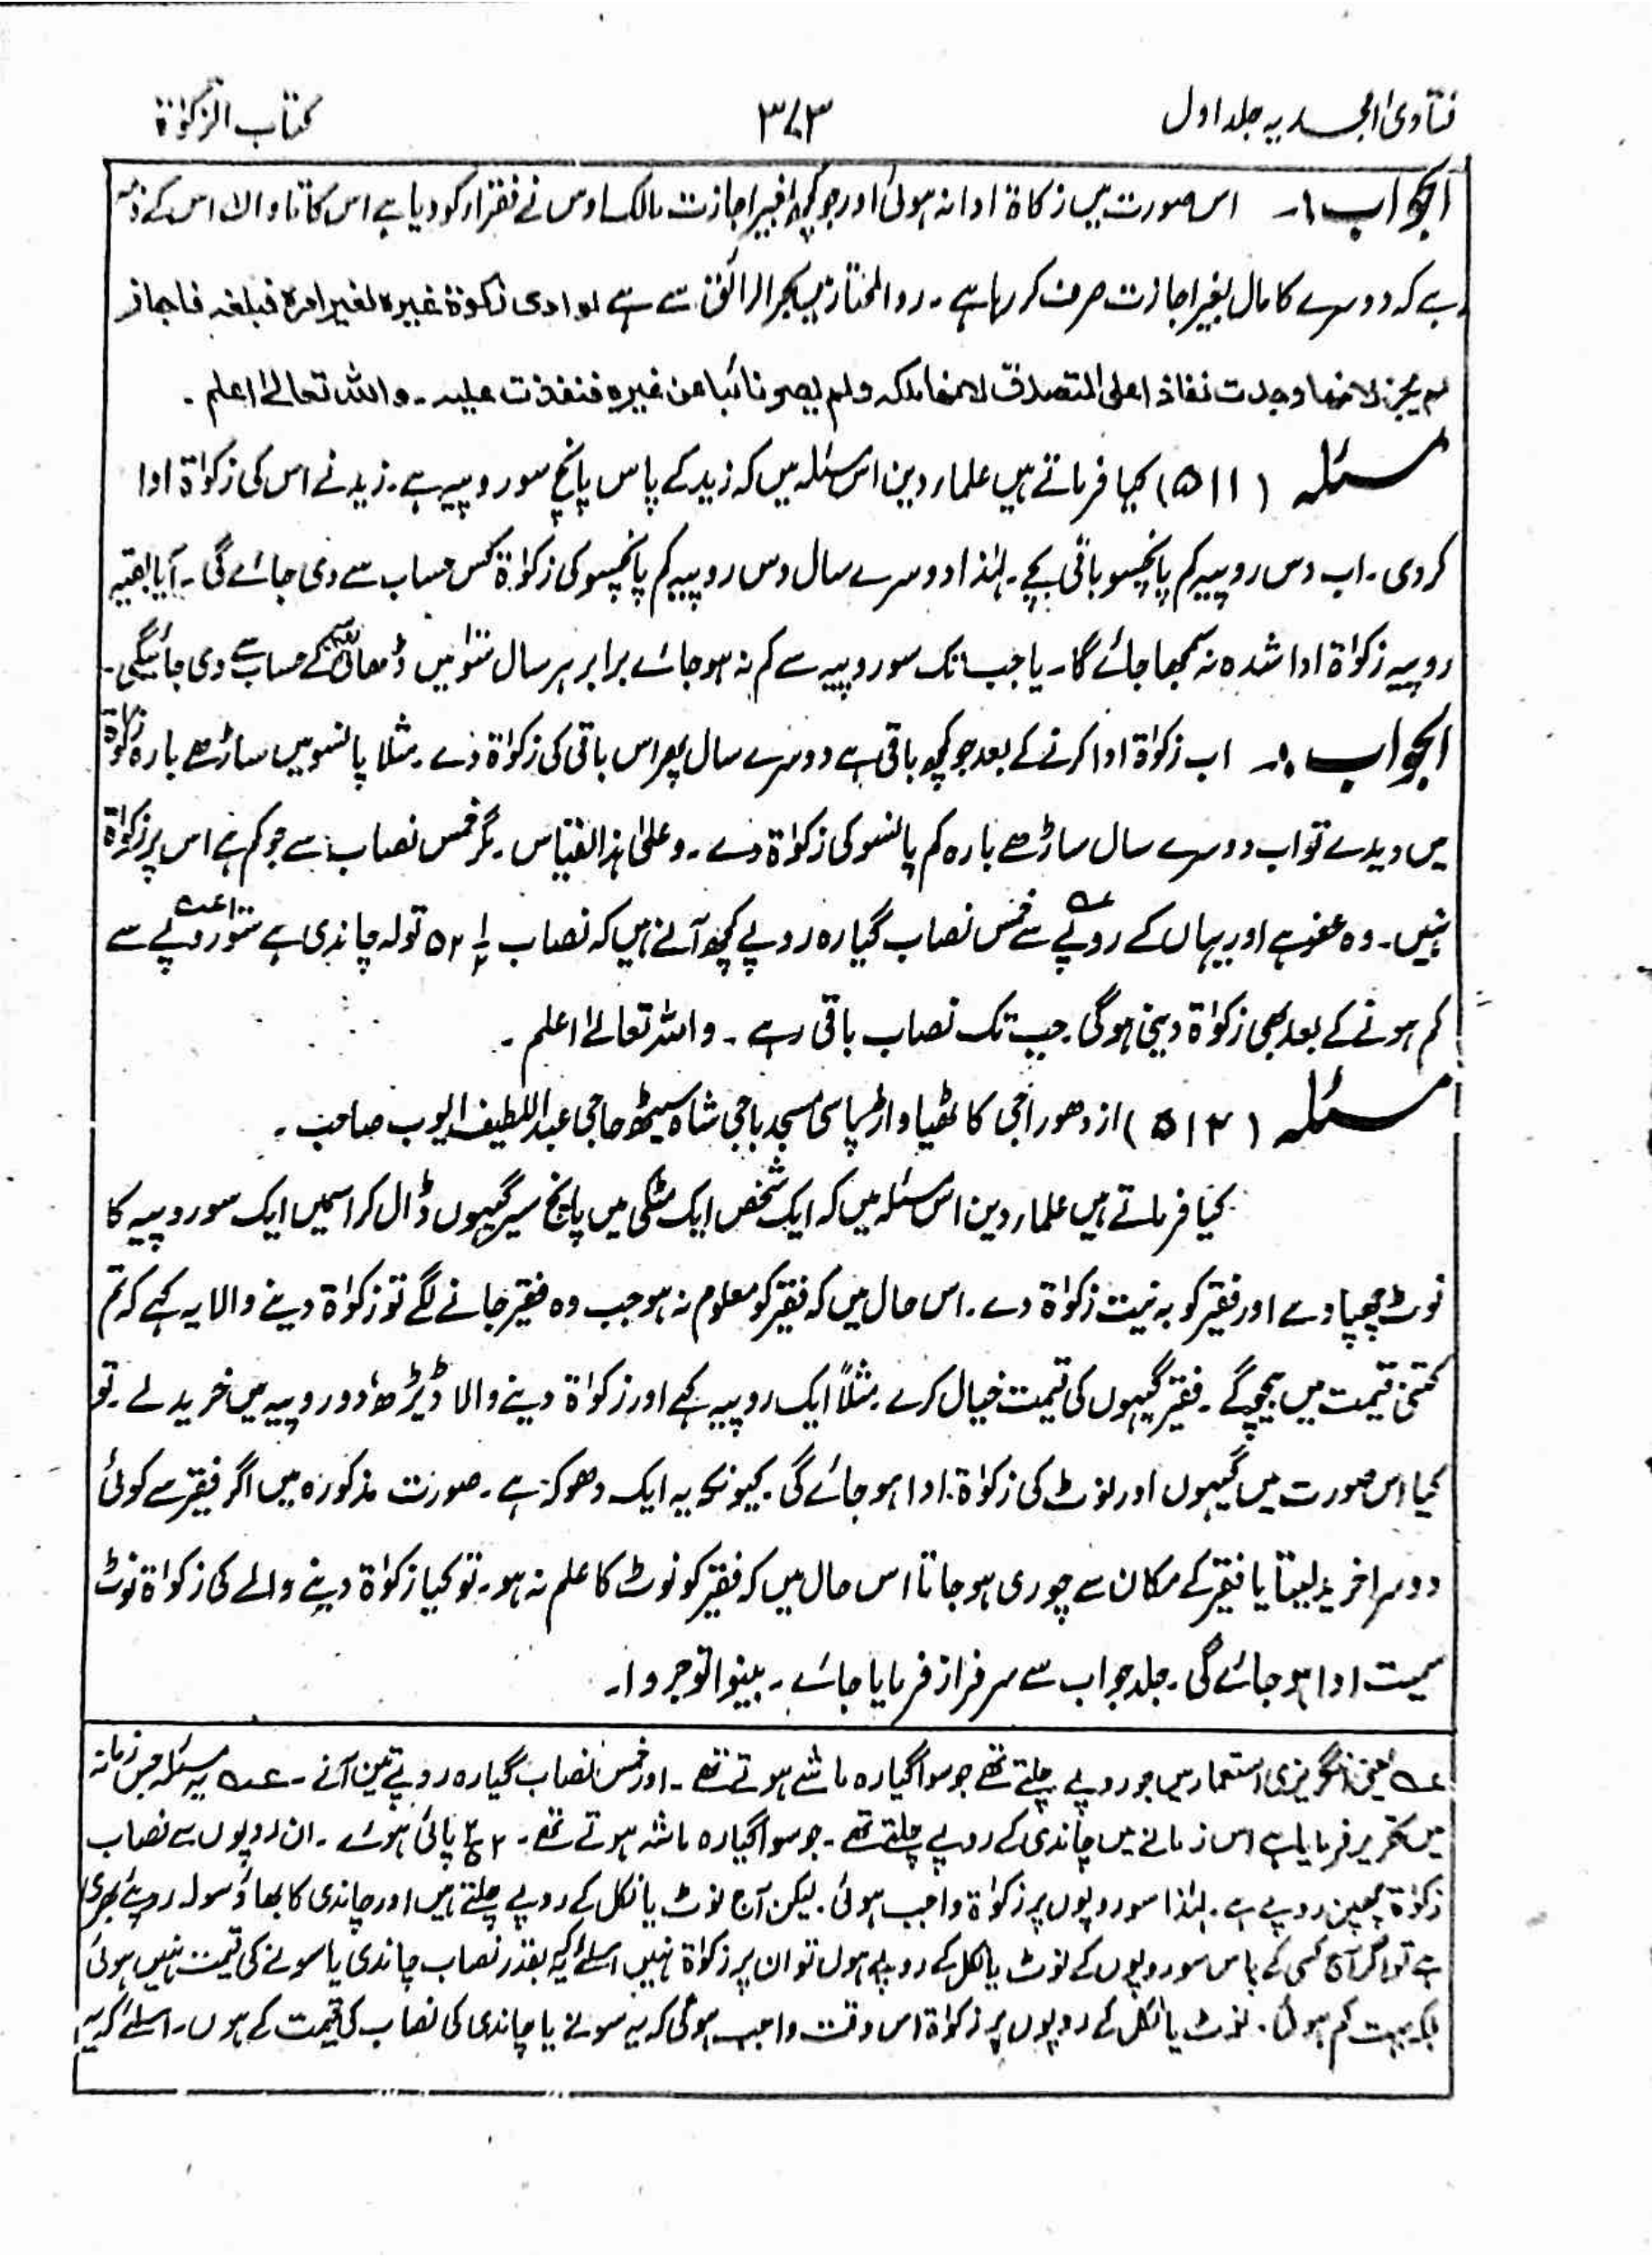 فتاویٰ امجدیہ جلد اول
۳۷۳
کتاب الزکوٰۃ
الجواب :۔ اس صورت میں زکاۃ ادا نہ ہوئی اور جو کچھ بغیر اجازت مالک اوس نے فقرار کو دیا ہے اس کا تاوان اس کے ذمہ
ہے کہ دوسرے کا مال بغیر اجازت صرف کر رہا ہے ۔ ردالمحتار میں بحر الرائق سے ہے لو ادی زکوۃ غیرہ بغیر امرہ فبلغہ فاجاز
لم یجز لانھا وجدت نفاذا علی المتصدق لانھا ملکہ ولم یصر نائبا عن غیرہ فنفذت علیہ ۔ واللہ تعالیٰ اعلم ۔
مسئلہ (۵۱۱) کیا فرماتے ہیں علمار دین اس مسئلہ میں کہ زید کے پاس پانچ سو روپیہ ہے ۔ زید نے اس کی زکوٰۃ ادا
کر دی ۔ اب دس روپیہ کم پانچسو باقی بچے ۔ لہٰذا دوسرے سال دس روپیہ کم پانچسو کی زکوٰۃ کس حساب سے دی جائے گی ۔ آیا بقیہ
روپیہ زکوٰۃ ادا شدہ نہ سمجھا جائے گا ۔ یا جب تک سو روپیہ سے کم نہ ہو جائے برابر ہر سال سَو میں ڈھائی کے حساب سے دی جائیگی ۔
الجواب :۔ اب زکوٰۃ ادا کرنے کے بعد جو کچھ باقی ہے دوسرے سال پھر اس باقی کی زکوٰۃ دے ۔ مثلا پانسو میں ساڑھے بارہ زکوٰۃ
میں دیدے تو اب دوسرے سال ساڑھے بارہ کم پانسو کی زکوٰۃ دے ۔ وعلیٰ ہذا القیاس ۔ مگر خمس نصاب سے جو کم ہے اس پر زکوٰۃ
نہیں ۔ وہ عفو ہے اور یہاں کے روپئے عہ سے خمس نصاب گیارہ روپے کچھ آنے ہیں کہ نصاب ۵۲ ۱/۲ تولہ چاندی ہے سَو روپے سے
کم ہونے کے بعد بھی زکوٰۃ دینی ہوگی جب تک نصاب باقی رہے ۔ واللہ تعالیٰ اعلم ۔
مسئلہ (۵۱۲) از دھوراجی کاٹھیاواڑ سپاسی مسجد باجی شاہ سیٹھ حاجی عبداللطیف ایوب صاحب ۔
کیا فرماتے ہیں علمار دین اس مسئلہ میں کہ ایک شخص ایک مٹکی میں پانچ سیر گیہوں ڈال کر اسمیں ایک سو روپیہ کا
نوٹ چھپا دے اور فقیر کو بہ نیت زکوٰۃ دے ۔ اس حال میں کہ فقیر کو معلوم نہ ہو جب وہ فقیر جانے لگے تو زکوٰۃ دینے والا یہ کہے کہ تم
کتنی قیمت میں بیچو گے ۔ فقیر گیہوں کی قیمت خیال کرے ۔ مثلاً ایک روپیہ کہے اور زکوٰۃ دینے والا ڈیڑھ، دو روپیہ میں خرید لے ۔ تو
کیا اس صورت میں گیہوں اور نوٹ کی زکوٰۃ ادا ہو جائے گی ۔ کیونکہ یہ ایک دھوکہ ہے ۔ صورت مذکورہ میں اگر فقیر سے کوئی
دوسرا خرید لیتا یا فقیر کے مکان سے چوری ہو جاتا اس حال میں کہ فقیر کو نوٹ کا علم نہ ہو ۔ تو کیا زکوٰۃ دینے والے کی زکوٰۃ نوٹ
سمیت ادا ہو جائے گی ۔ جلد جواب سے سرفراز فرمایا جائے ۔ بینوا توجروا ۔
عہ یعنی انگریزی استعمار میں جو روپے چلتے تھے جو سوا گیارہ ماشے ہوتے تھے ۔ اور خمس نصاب گیارہ روپے تین آنے ۔ عہ یہ مسئلہ جس زمانہ
میں تحریر فرمایا ہے اس زمانے میں چاندی کے روپے چلتے تھے ۔ جو سوا گیارہ ماشہ ہوتے تھے ۔ پائی ہوئے ۔ ان روپوں سے نصاب
زکوٰۃ چھپن روپے ہے ۔ لہٰذا سو روپوں پر زکوٰۃ واجب ہوئی ۔ لیکن آج نوٹ یا نکل کے روپے چلتے ہیں اور چاندی کا بھاؤ سولہ روپئے بھری
ہے تو اگر آج کسی کے پاس سو روپوں کے نوٹ یا نکل کے روپے ہوں تو ان پر زکوٰۃ نہیں اسلئے کہ یہ بقدر نصاب چاندی یا سونے کی قیمت نہیں ہوئی
بلکہ بہت کم ہوئی ۔ نوٹ یا نکل کے روپوں پر زکوٰۃ اس وقت واجب ہوگی کہ یہ سونے یا چاندی کی نصاب کی قیمت کے ہوں ۔ اسلئے کہ یہ